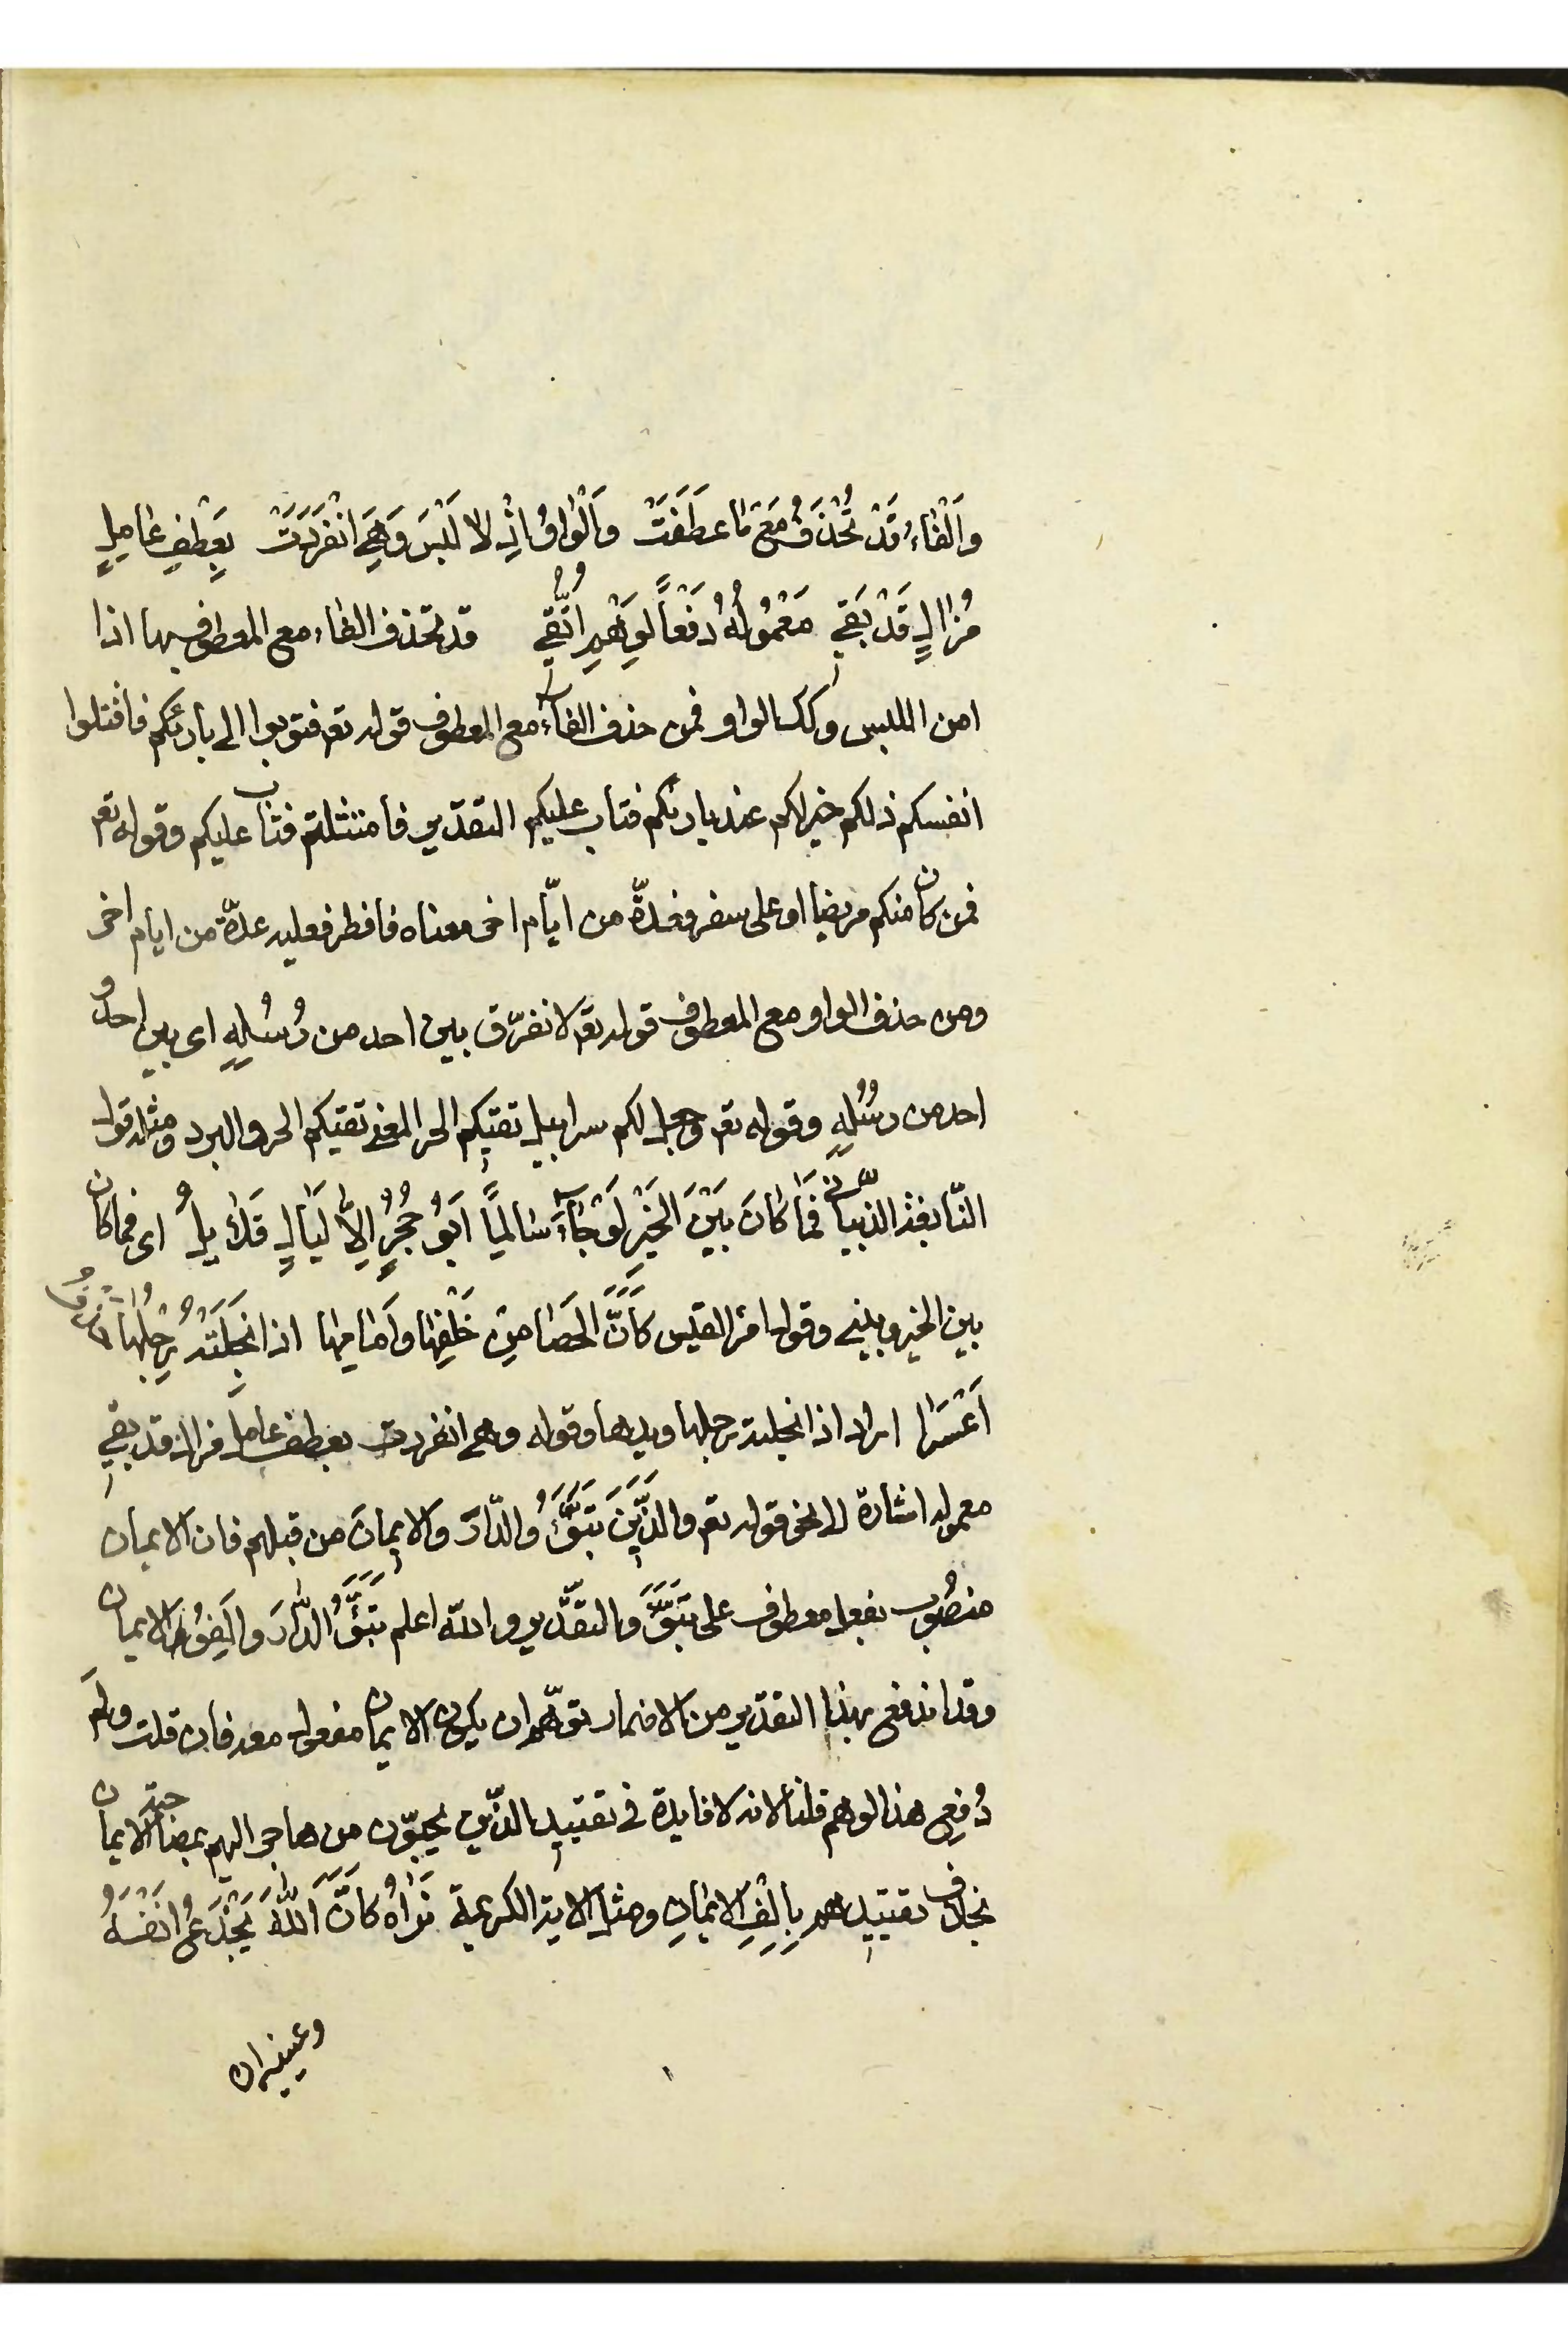 وَالْفَاءُ قَدْ تُحْذَفُ مَعْ مَا عَطَفَتْ وَالْوَاوُ اِذْ لَا لَبْسَ وَهِيَ انْفَرَدَتْ بِعَطْفِ عَامِلٍ
مُزَالٍ قَدْ بَقِي مَعْمُولُهُ دَفْعًا لِوَهْمٍ اتُّقِي قد تحذف الفاء مع المعطوف بها اذا
امن اللبس وكك الواو فمن حذف الفاء مع المعطوف قوله تعم فتوبوا الى بارئكم فاقتلوا
انفسكم ذلكم خير لكم عند بارئكم فتاب عليكم التقدير فامتثلتم فتاب عليكم وقوله تعم
فمن كان منكم مريضا او على سفر فعدّة من ايّام اخر معناه فافطر فعليه عدّة من ايام اخر
ومن حذف الواو مع المعطوف قوله تعم لا نفرّق بين احد من رُسُلِهِ اى بين احد و
احد من رسُلِهِ وقوله تعم وجعل لكم سرابيل تقيكم الحر المعنى تقيكم الحر والبرد ومثله قول
النّابغة الذّبياني فَمَا كَانَ بَيْنَ الخَيْرِ لَوْ جَاءَ سَالِمًا اَبُو حُجُرٍ اِلاَّ لَيَالٍ قَلَائِلُ اى فما كان
بين الخير وبينى وقول امرء القيس كَأَنَّ الحَصَا مِنْ خَلْفِهَا وَاَمَامِهَا اذا انجَلَتْهُ رِجْلُهَا خذفُ
اَعْسَرَا اراد اذا انجلته رجلها ويدها وقوله وهى انفردت بعطف عامل مزال قد بقي
معموله اشارة الى نحو قوله تعم والذّين تَبَوَّؤُ والدّارَ والايمانَ من قبلهم فان الايمان
منصُوب بفعل معطوف على تبَوَّؤَ والتقدير والله اعلم تَبَوَّؤُ الدَّارَ وَاَلِفُوا الايمان
وقد اندفع بهذا التقدير من الاضمار توهّم ان يكون الايمان مفعول معه فان قلت ولم
دُفِع هذا لوهم قلنا لانه لا فايدة في تقييد الذّين يحبّون من هاجر اليهم بمصاحبة الايمان
بخلاف تقييدهم بِاَلِفِ الايمَانِ ومثل الاية الكريمة تَرَاهُ كَأَنَّ اللّٰهَ يَجْدَعُ اَنْفَهُ
وعينيه ان